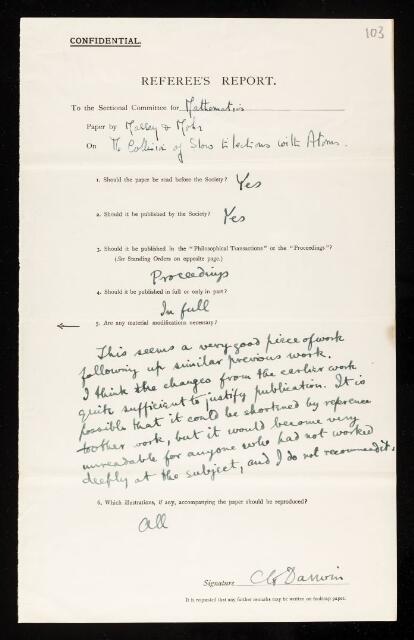 103
CONFIDENTIAL.
REFEREE'S REPORT.
To the Sectional Committee for Mathematics
Paper by Massey & Mohr
On The Collision of Slow Electrons with Atoms.
1. Should the paper be read before the Society? Yes
2. Should it be published by the Society? Yes
3. Should it be published in the "Philosophical Transactions" or the "Proceedings"?
(See Standing Orders on opposite page.)
Proceedings
4. Should it be published in full or only in part?
In full
5. Are any material modifications necessary?
This seems a very good piece of work
following up similar previous work.
I think the changes from the earlier work
quite sufficient to justify publication. It is
possible that it could be shortened by reference
to other work, but it would become very
unreadable for anyone who had not worked
deeply at the subject, and I do not recommend it.
6. Which illustrations, if any, accompanying the paper should be reproduced?
All
Signature CG Darwin
It is requested that any further remarks may be written on foolscap paper.